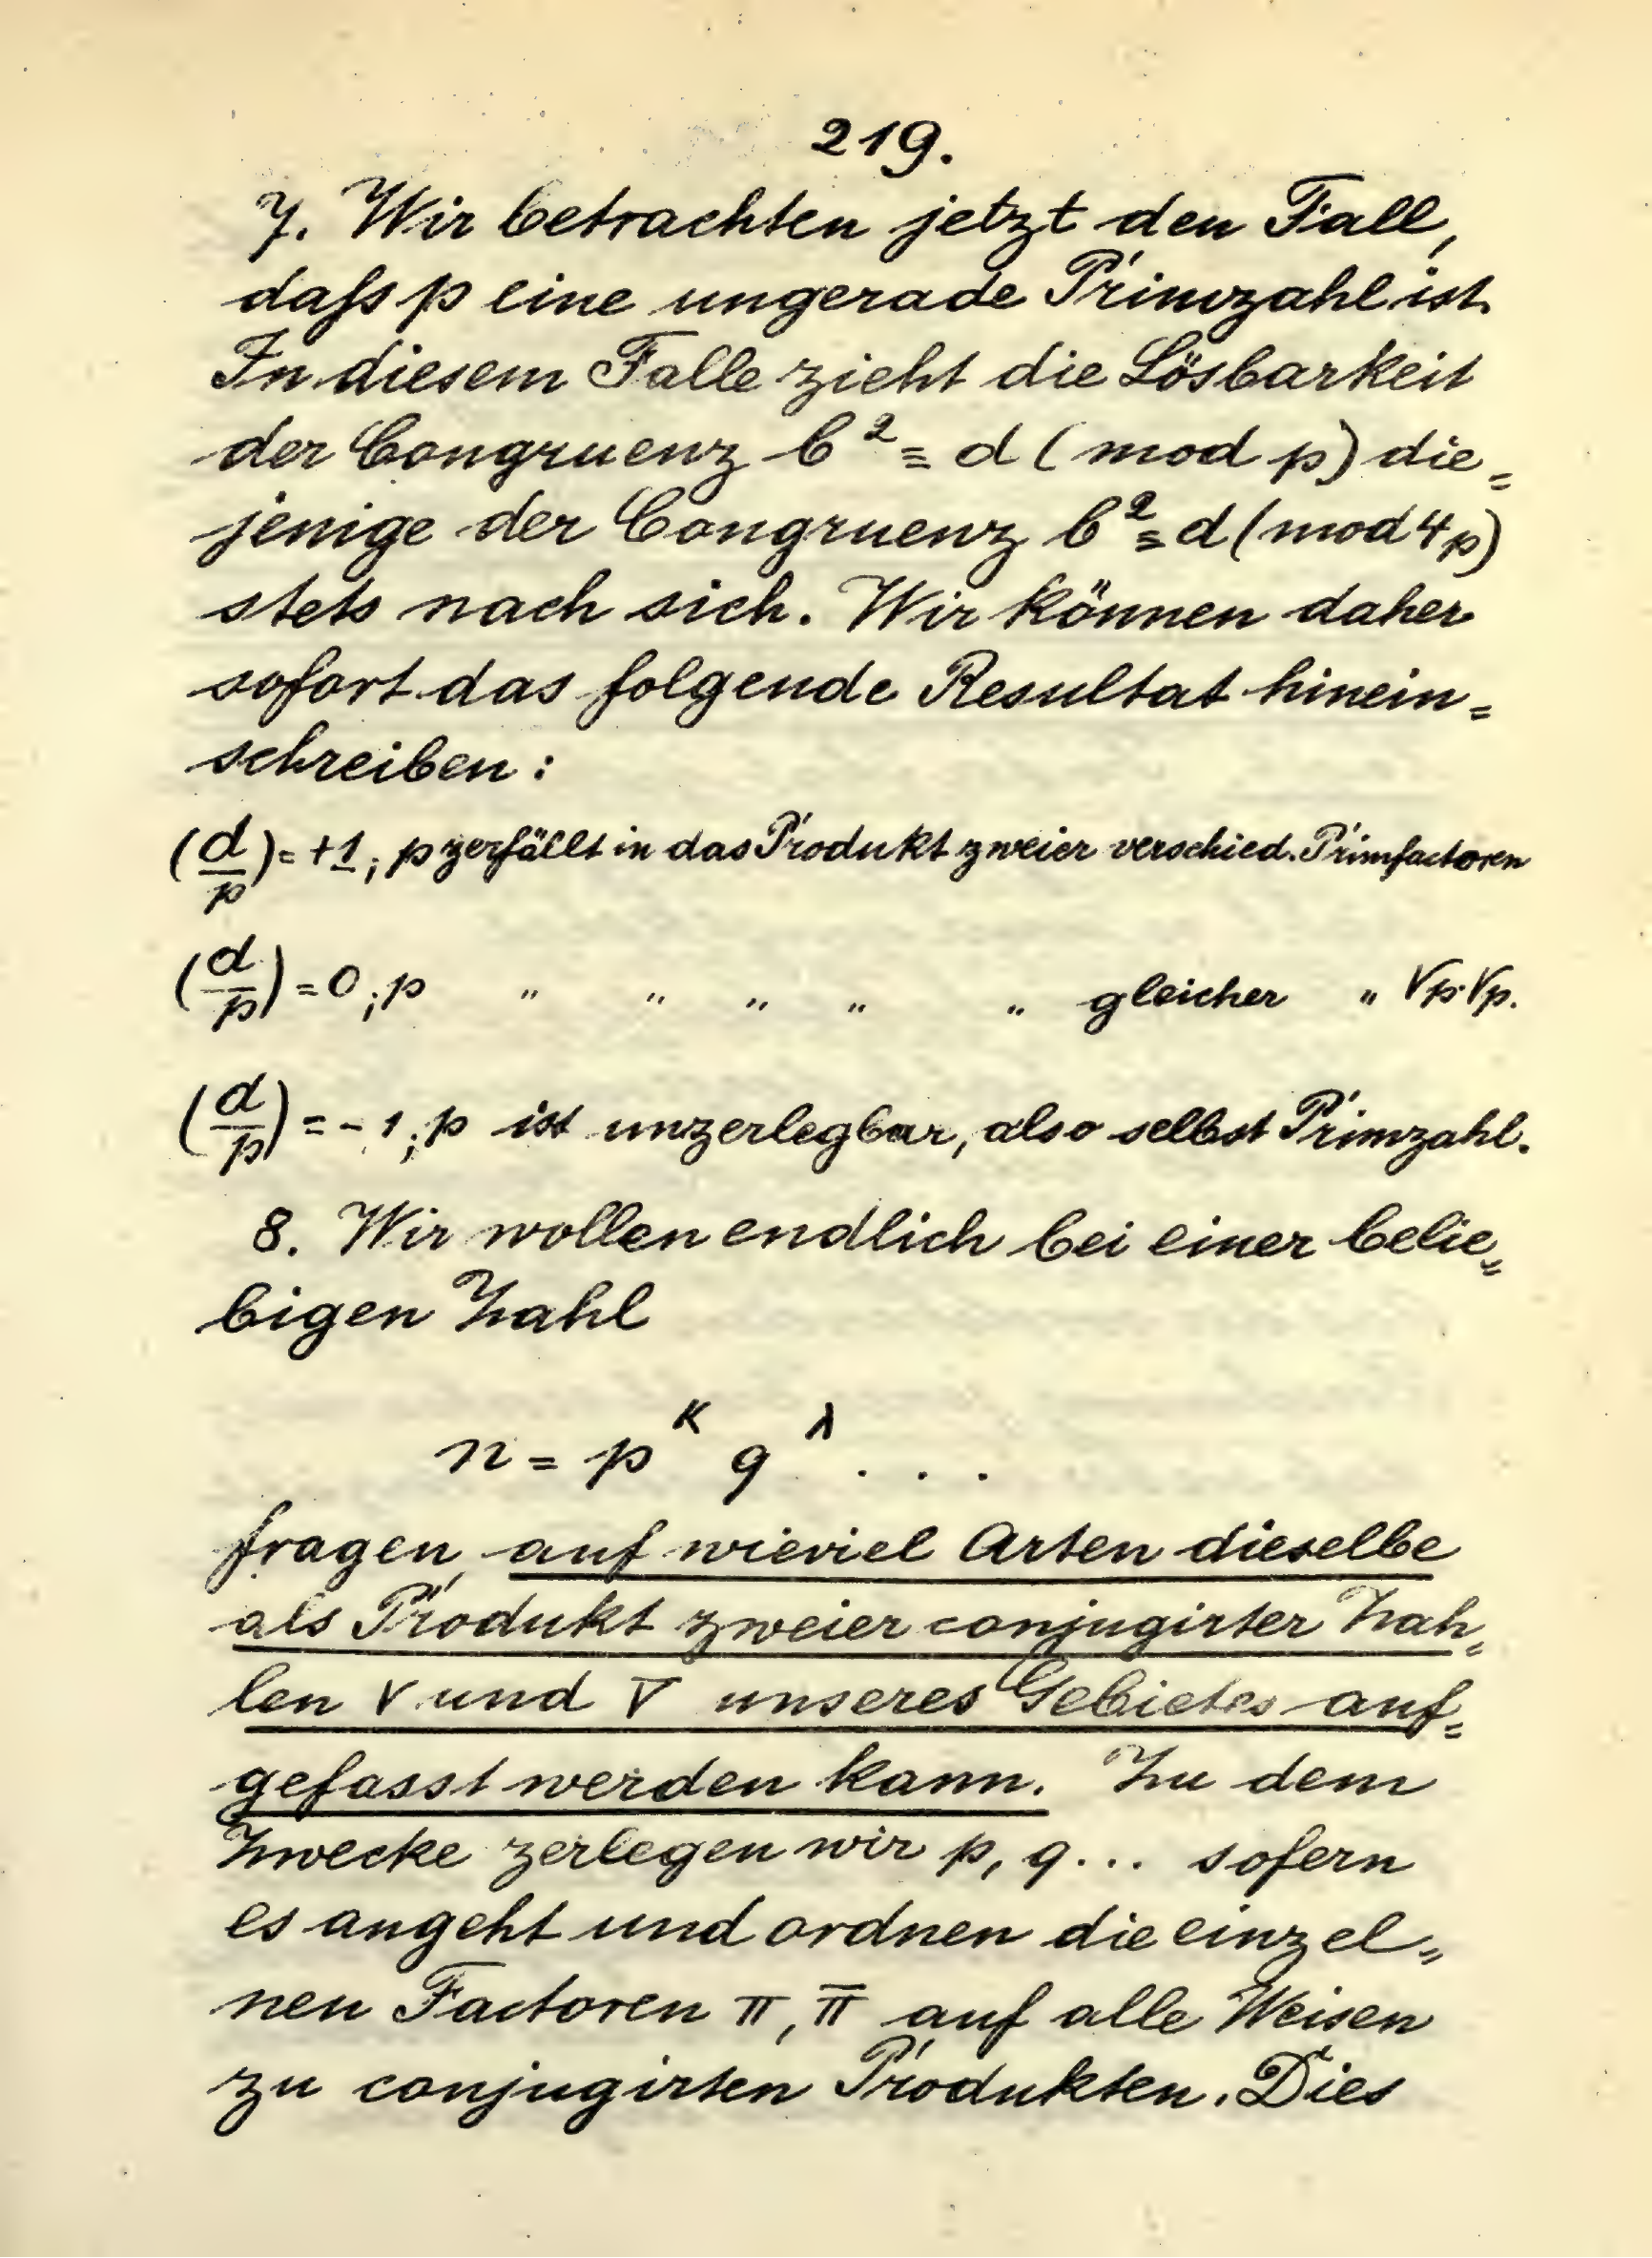 219.
7. Wir betrachten jetzt den Fall,
daſs p eine ungerade Primzahl ist.
In diesem Falle zieht die Lösbarkeit
der Congruenz b² ≡ d (mod p) die=
jenige der Congruenz b² ≡ d (mod 4p)
stets nach sich. Wir können daher
sofort das folgende Resultat hinein=
schreiben:
(d/p) = +1; p zerfällt in das Produkt zweier verschied. Primfactoren
(d/p) = 0; p " " " " " gleicher " √p·√p.
(d/p) = -1; p ist unzerlegbar, also selbst Primzahl.
8. Wir wollen endlich bei einer belie=
bigen Zahl
n = p^κ q^λ . . .
fragen, auf wieviel Arten dieselbe
als Produkt zweier conjugirter Zah=
len ν und ν̄ unseres Gebietes auf=
gefasst werden kann. Zu dem
Zwecke zerlegen wir p, q... sofern
es angeht und ordnen die einzel=
nen Factoren π, π̄ auf alle Weisen
zu conjugirten Produkten. Dies